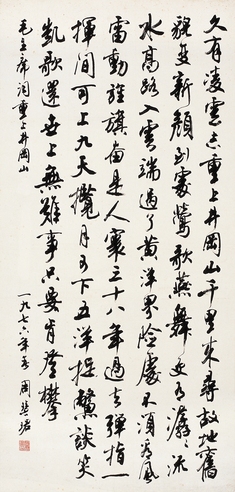 久有凌雲志重上井岡山千里来尋故地舊
貌变新顔到處鶯歌燕舞更有潺潺流
水高路入雲端過了黄洋界險處不須看風
雷動旌旗奋是人寰三十八年過去弹指一
揮间可上九天攬月可下五洋捉鱉談笑
凱歌還世上無難事只要肯登攀
毛主席词重上井岡山
一九七六年 周慧珺